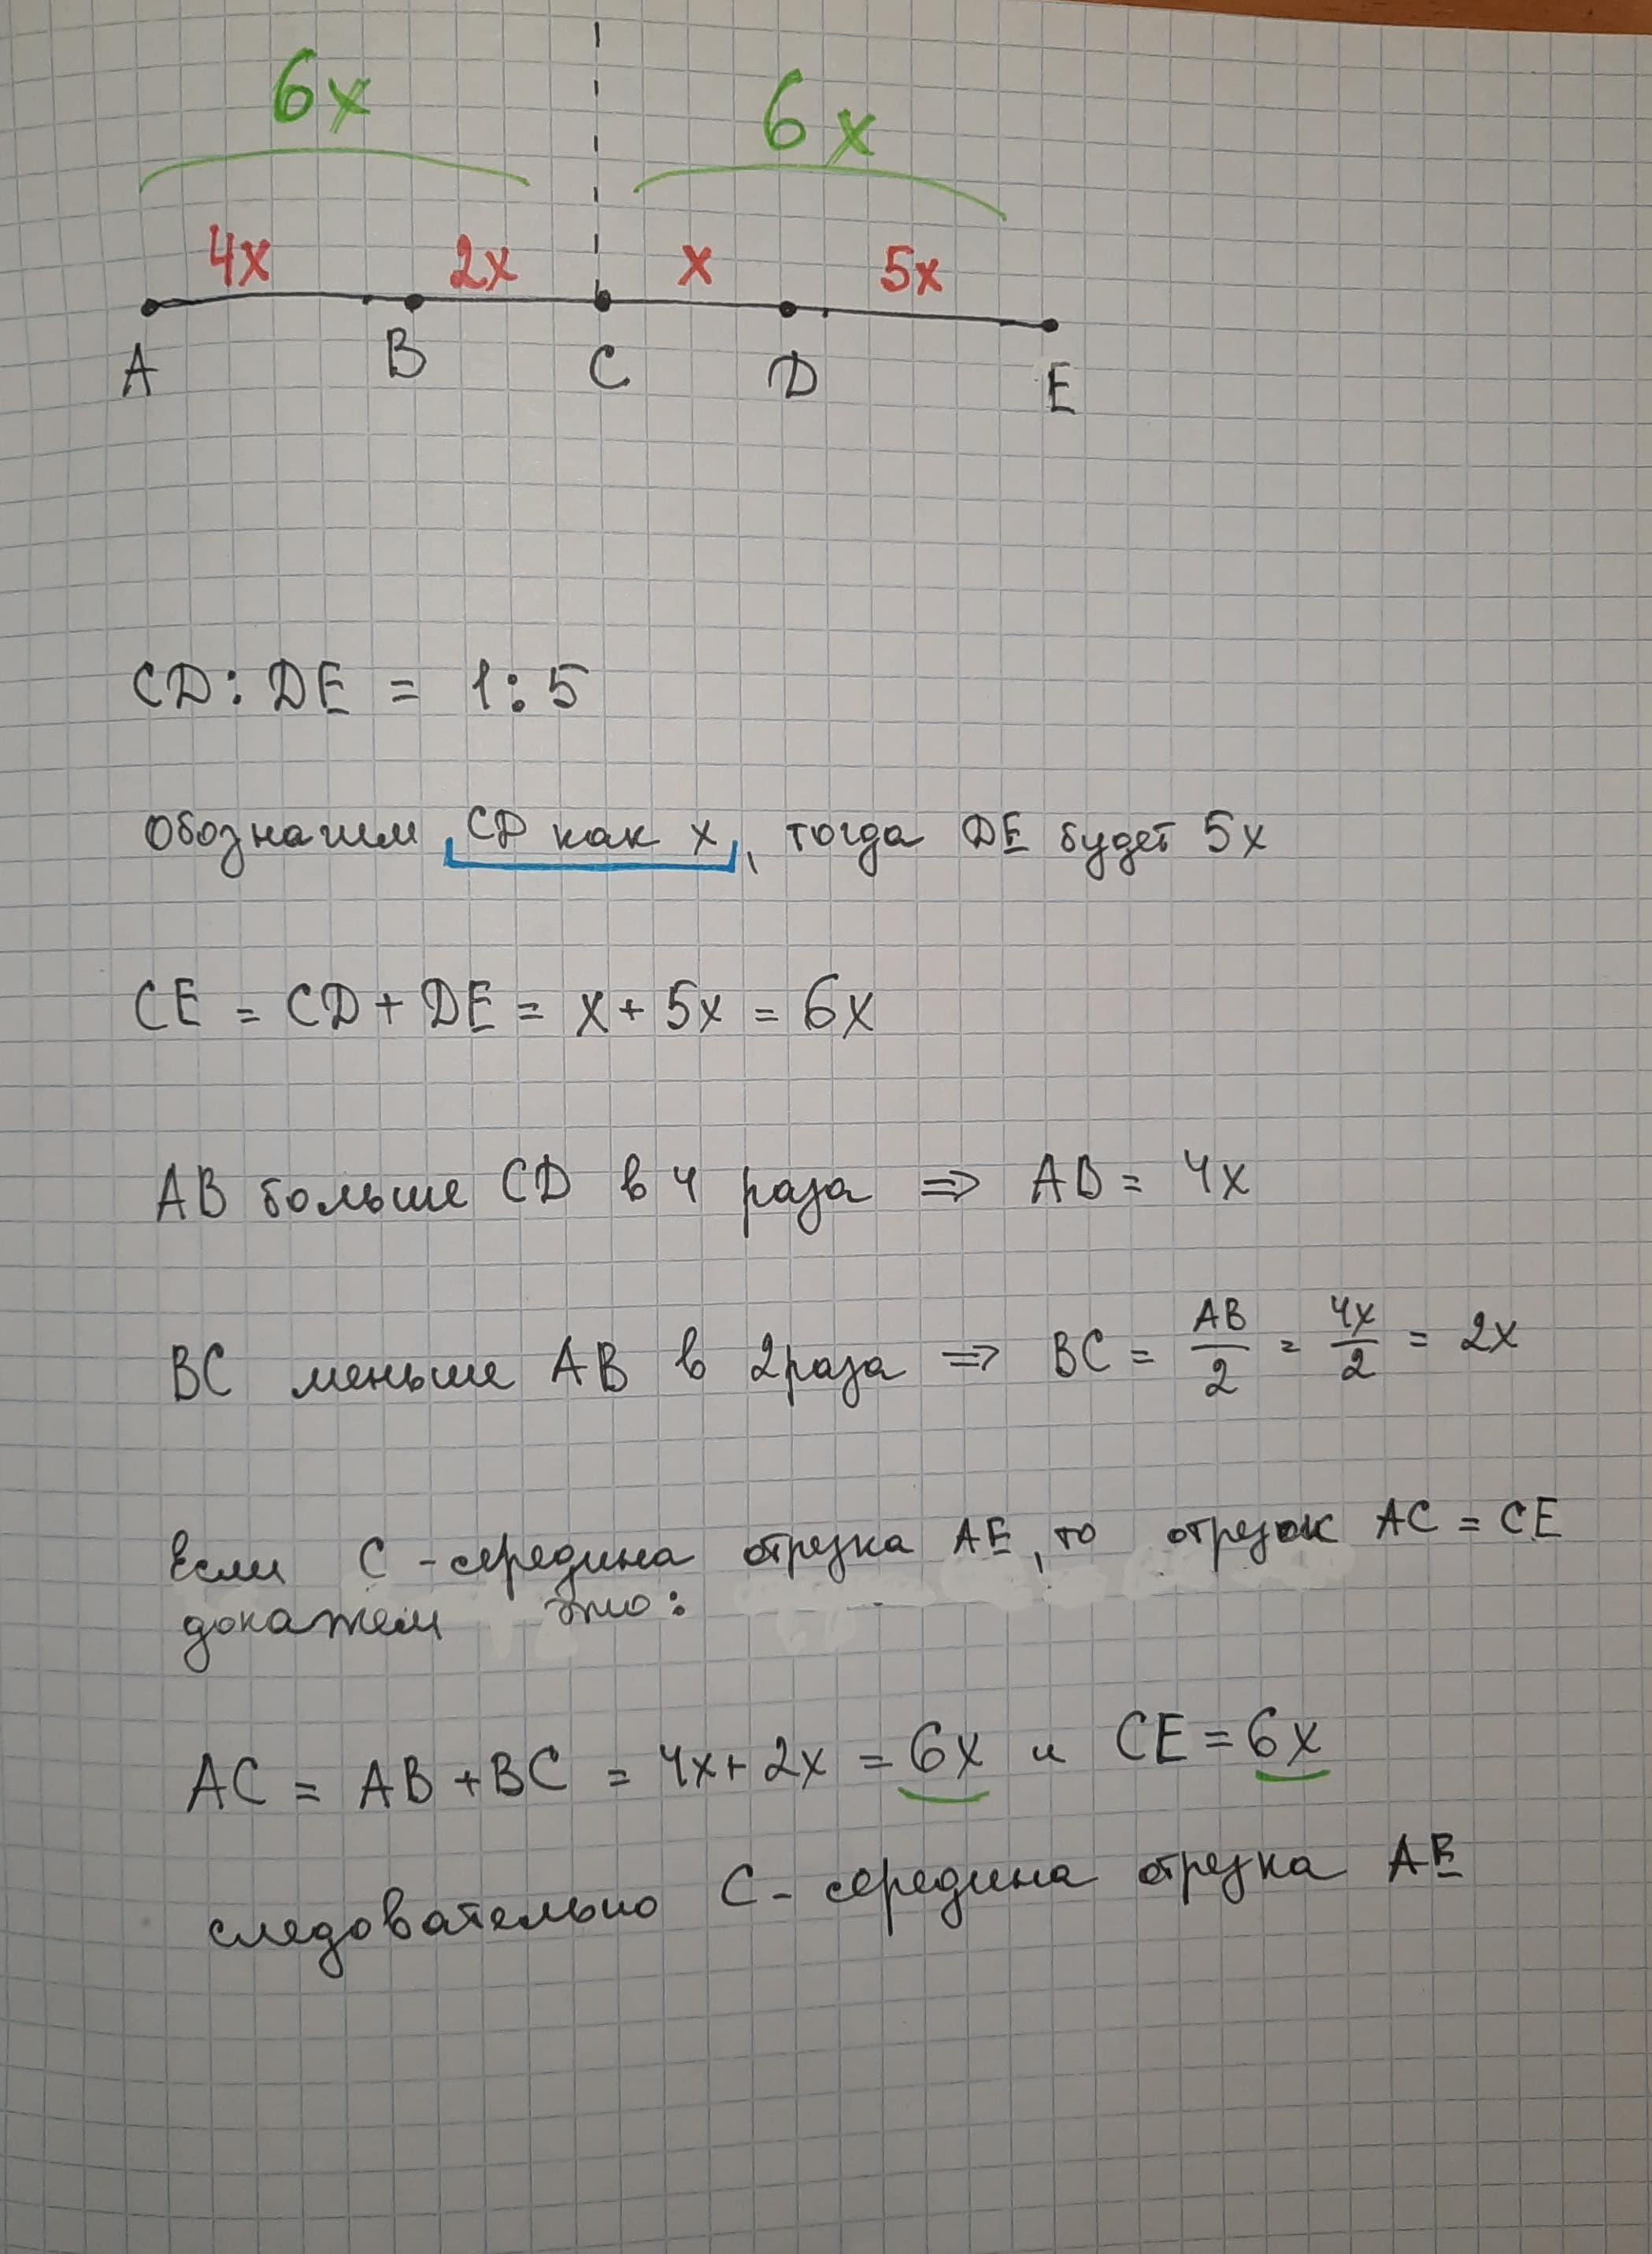 6x 6x
4x 2x x 5x
A B C D E
CD : DE = 1 : 5
Обозначим CD как x, тогда DE будет 5x
CE = CD + DE = x + 5x = 6x
AB больше CD в 4 раза ⇒ AB = 4x
BC меньше AB в 2 раза ⇒ BC = AB/2 = 4x/2 = 2x
Если C - середина отрезка AE, то отрезок AC = CE
докажем это:
AC = AB + BC = 4x + 2x = 6x и CE = 6x
следовательно C - середина отрезка AE